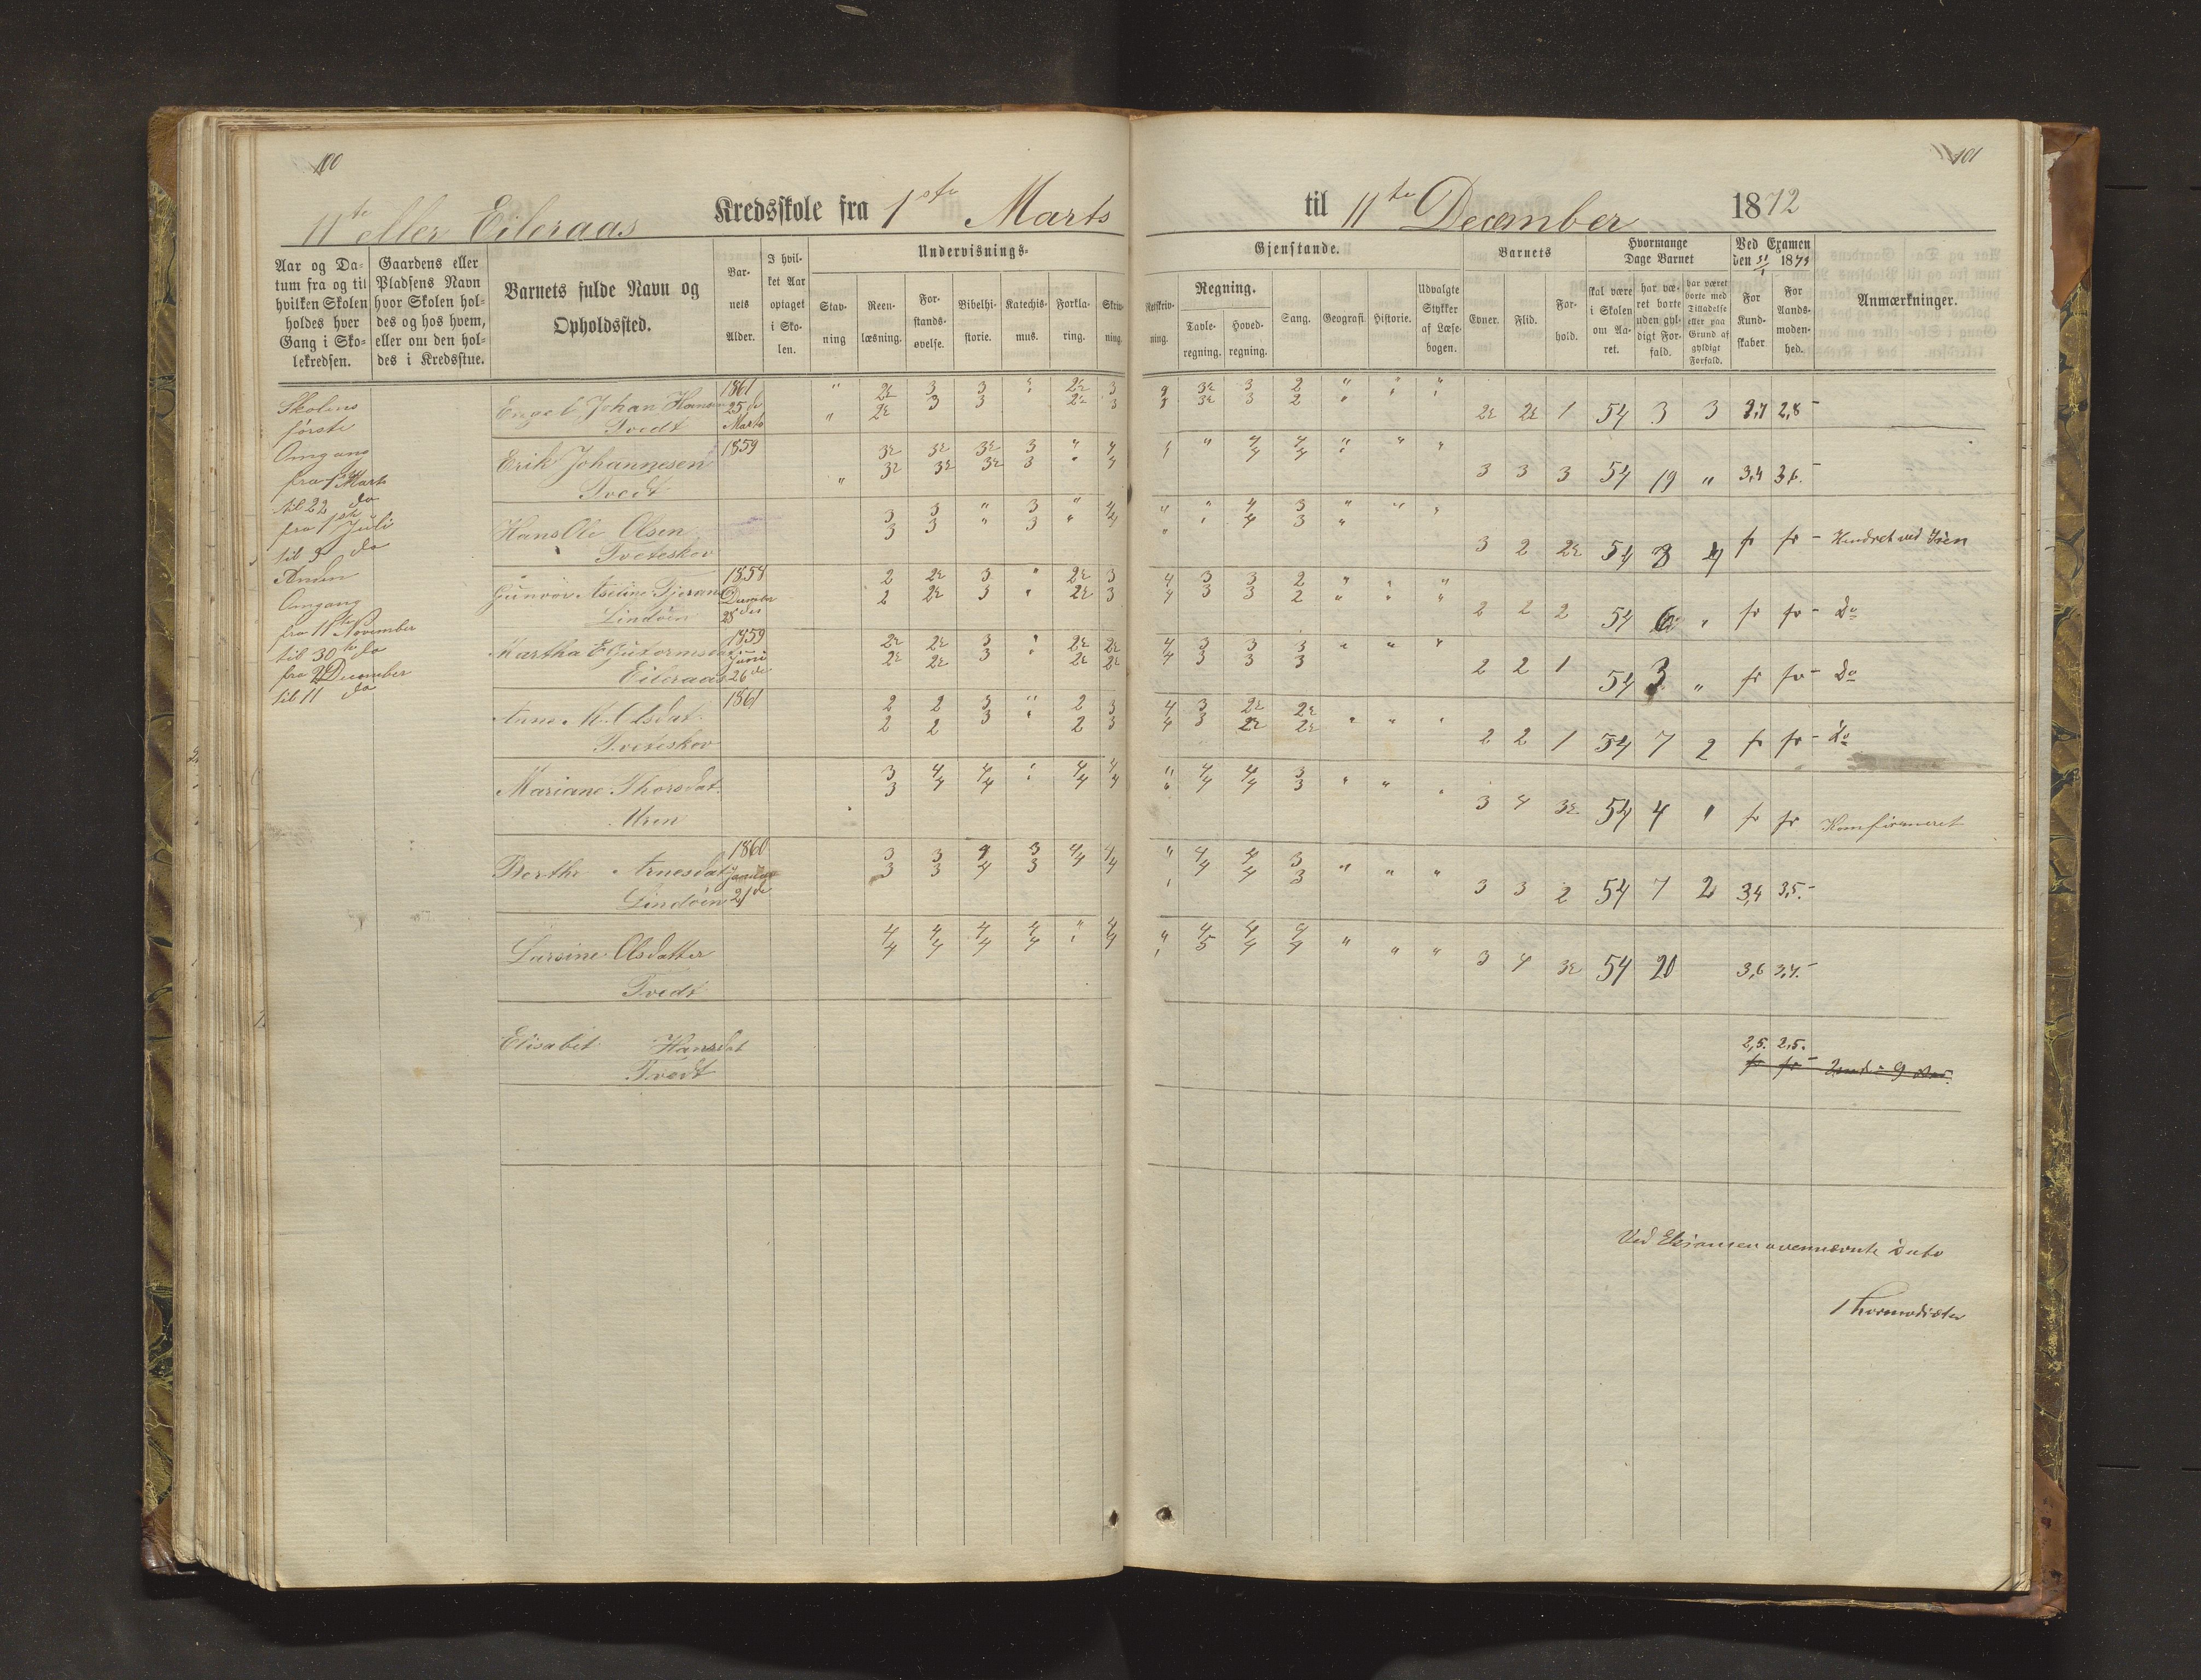 100
101
11te eller Eileraas Kredsskole fra 1ste Marts til 11te December 1872
Aar og Datum fra og til hvilken Skolen holdes hver Gang i Skolekredsen.
Gaardens eller Pladsens Navn hvor Skolen holdes og hos hvem, eller om den holdes i Kredsstue.
Barnets fulde Navn og Opholdssted.
Barnets Alder.
I hvilket Aar optaget i Skolen.
Undervisnings-
Gjenstande.
Stavning
Reenlæsning.
Forstandsøvelse.
Bibelhistorie.
Katechismus.
Forklaring.
Skrivning.
Retskrivning.
Regning.
Tavleregning.
Hovedregning.
Sang.
Geografi.
Historie.
Udvalgte Stykker af Læsebogen.
Barnets
Evner.
Flid.
Forhold.
Hvormange Dage Barnet
skal være i Skolen om Aaret.
har været borte uden gyldigt Forfald.
har været borte med Tilladelse eller paa Grund af gyldigt Forfald.
Ved Examen den 31/1 1873
For Kundskaber
For Aandsmodenhed.
Anmærkninger.
Skolens
første
Omgang
fra 1ste Marts
til 22 do
fra 1ste Juli
til 9 do
Anden
Omgang
fra 11te November
til 30te do
fra 2 December
til 11 do
Engel Johan Hansen 1861 25de Marts " 2½ 3 3 " 2½ 3 3 3½ 3 2 " " "
Tvedt " 2½ 3 3 2½ 3 3 3½ 3 2 " 2½ 2½ 1 54 3 3 2,7 2,8
Erik Johannesen 1859 3½ 3½ 3½ 3 " 4 " " 4 4 " " "
Tvedt " 3½ 3½ 3½ 3 " 4 4 4 3 3 3 54 19 " 3,4 3,6.
Hans Ole Olsen 3 3 " 3 " 4 " " 4 3 " " "
Tveteskov 3 3 " 3 " 4 " " 4 3 " 3 2 2½ 54 3 4 fr fr Hindret ved Isen
Gunvor Aseline Tjerans 1858 December 28de 2 2½ 3 " 2½ 3 4 3 3 2 " " "
Lindøen 2 2½ 3 " 2½ 3 4 3 3 2 " " " 2 2 2 54 6 " fr fr Do
Martha E Guttormsdat 1859 Juni 26de 2½ 2½ 3 " 2½ 2½ 4 3 3 3 " " "
Eileraas 2½ 2½ 3 " 2½ 2½ 4 3 3 3 2 2 1 54 3 " fr fr Do
Anne M. Olsdat. 1861 2 2 3 " 2 3 4 3 2½ 2½
Tveteskov 2 2 3 " 2 3 4 3 2½ 2½ " " " 2 2 1 54 7 2 fr fr Do
Mariane Thorsdat. 3 4 4 " 4 4 " 4 4 3
Uren 3 4 4 " 4 4 " 4 4 3 " " " 3 4 3½ 54 4 " fr fr Konfirmeret
Berthe Arnesdat 1860 Januar 21de 3 3 4 3 4 4 " 4 4 3
Lindøen 3 3 4 3 4 4 " 4 4 3 " " " 3 3 2 54 7 2 3,4 3,5.
Larsine Olsdatter 4 4 4 4 " 4 " 4 4 4
Tvedt 4 4 4 4 " 4 " 5 4 4 " " " 3 4 3½ 54 20 3,6 3,4.
Elisabet Hansdat 2,5. 2,5.
Tvedt fr fr
Ved Eksamen ovennævnte Dato